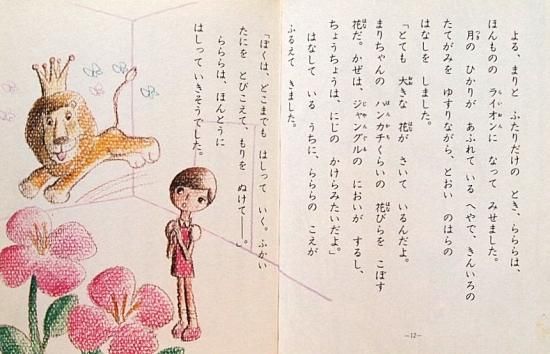 よる、まりと ふたりだけの とき、らららは、
ほんものの ライオンに なって みせました。
月の ひかりが あふれている へやで、きんいろの
たてがみを ゆすりながら、とおい のはらの
はなしを しました。
「とても 大きな 花が さいて いるんだよ。
まりちゃんの ハンカチくらいの 花びらを こぼす
花だ。かぜは、ジャングルの においが するし、
ちょうちょうは、にじの かけらみたいだよ。」
はなして いる うちに、らららの こえが
ふるえて きました。
「ぼくは、どこまでも はしって いく。ふかい
たにを とびこえて、もりを ぬけて――。」
らららは、ほんとうに
はしって いきそうでした。
—12—